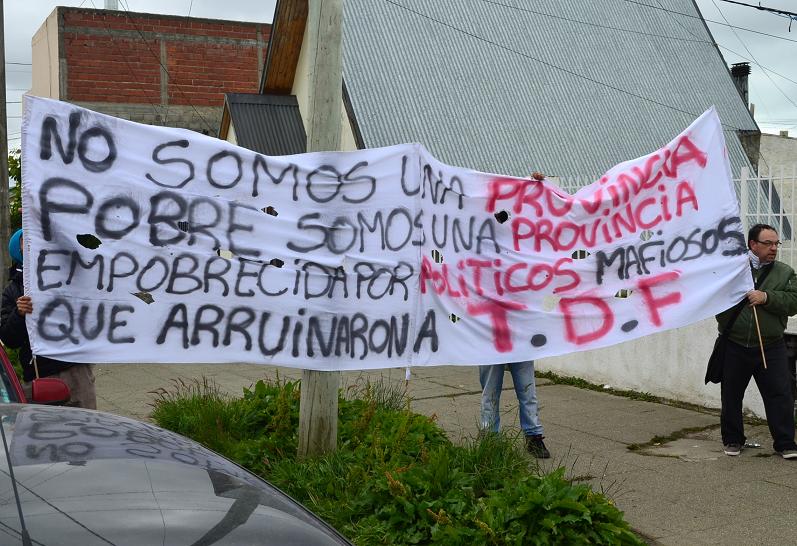 NO SOMOS UNA PROVINCIA
POBRE SOMOS UNA PROVINCIA
EMPOBRECIDA POR POLITICOS MAFIOSOS
QUE ARRUINARON A T.D.F